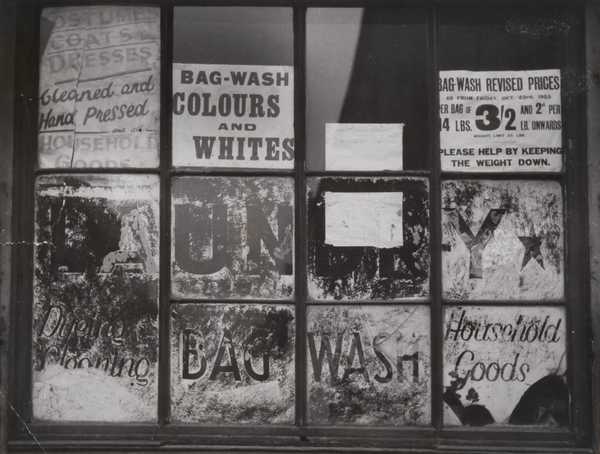 COSTUMES
COATS &
DRESSES
Cleaned and
Hand Pressed
HOUSEHOLD
GOODS
BAG-WASH
COLOURS
AND
WHITES
BAG-WASH REVISED PRICES
AS FROM FRIDAY, OCT. 23RD, 1953
PER BAG OF 14 LBS. 3/2 AND 2D PER LB. UPWARDS
PLEASE HELP BY KEEPING
THE WEIGHT DOWN.
LAUNDRY
Dyeing
Cleaning
BAG WASH
Household
Goods